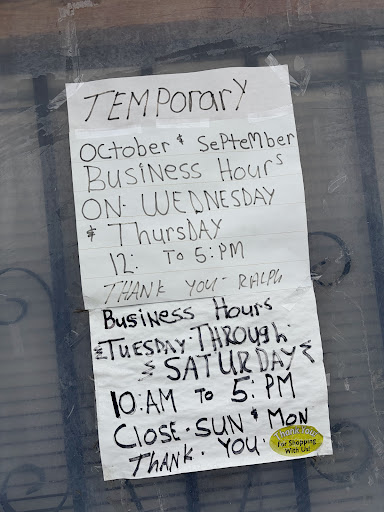 TEMPorarY
OCTober & SePTeMber
BUSINess Hours
ON. WEDNESDAY
& ThursDAY
12: To 5: PM
THANK YOU- RALPH
BUSINess Hours
TUESDAY THROUGH.
SATURDAY
10: AM To 5: PM
CLOSE. SUN & MON
THANK. YOU.
Thank You
For Shopping
With Us!